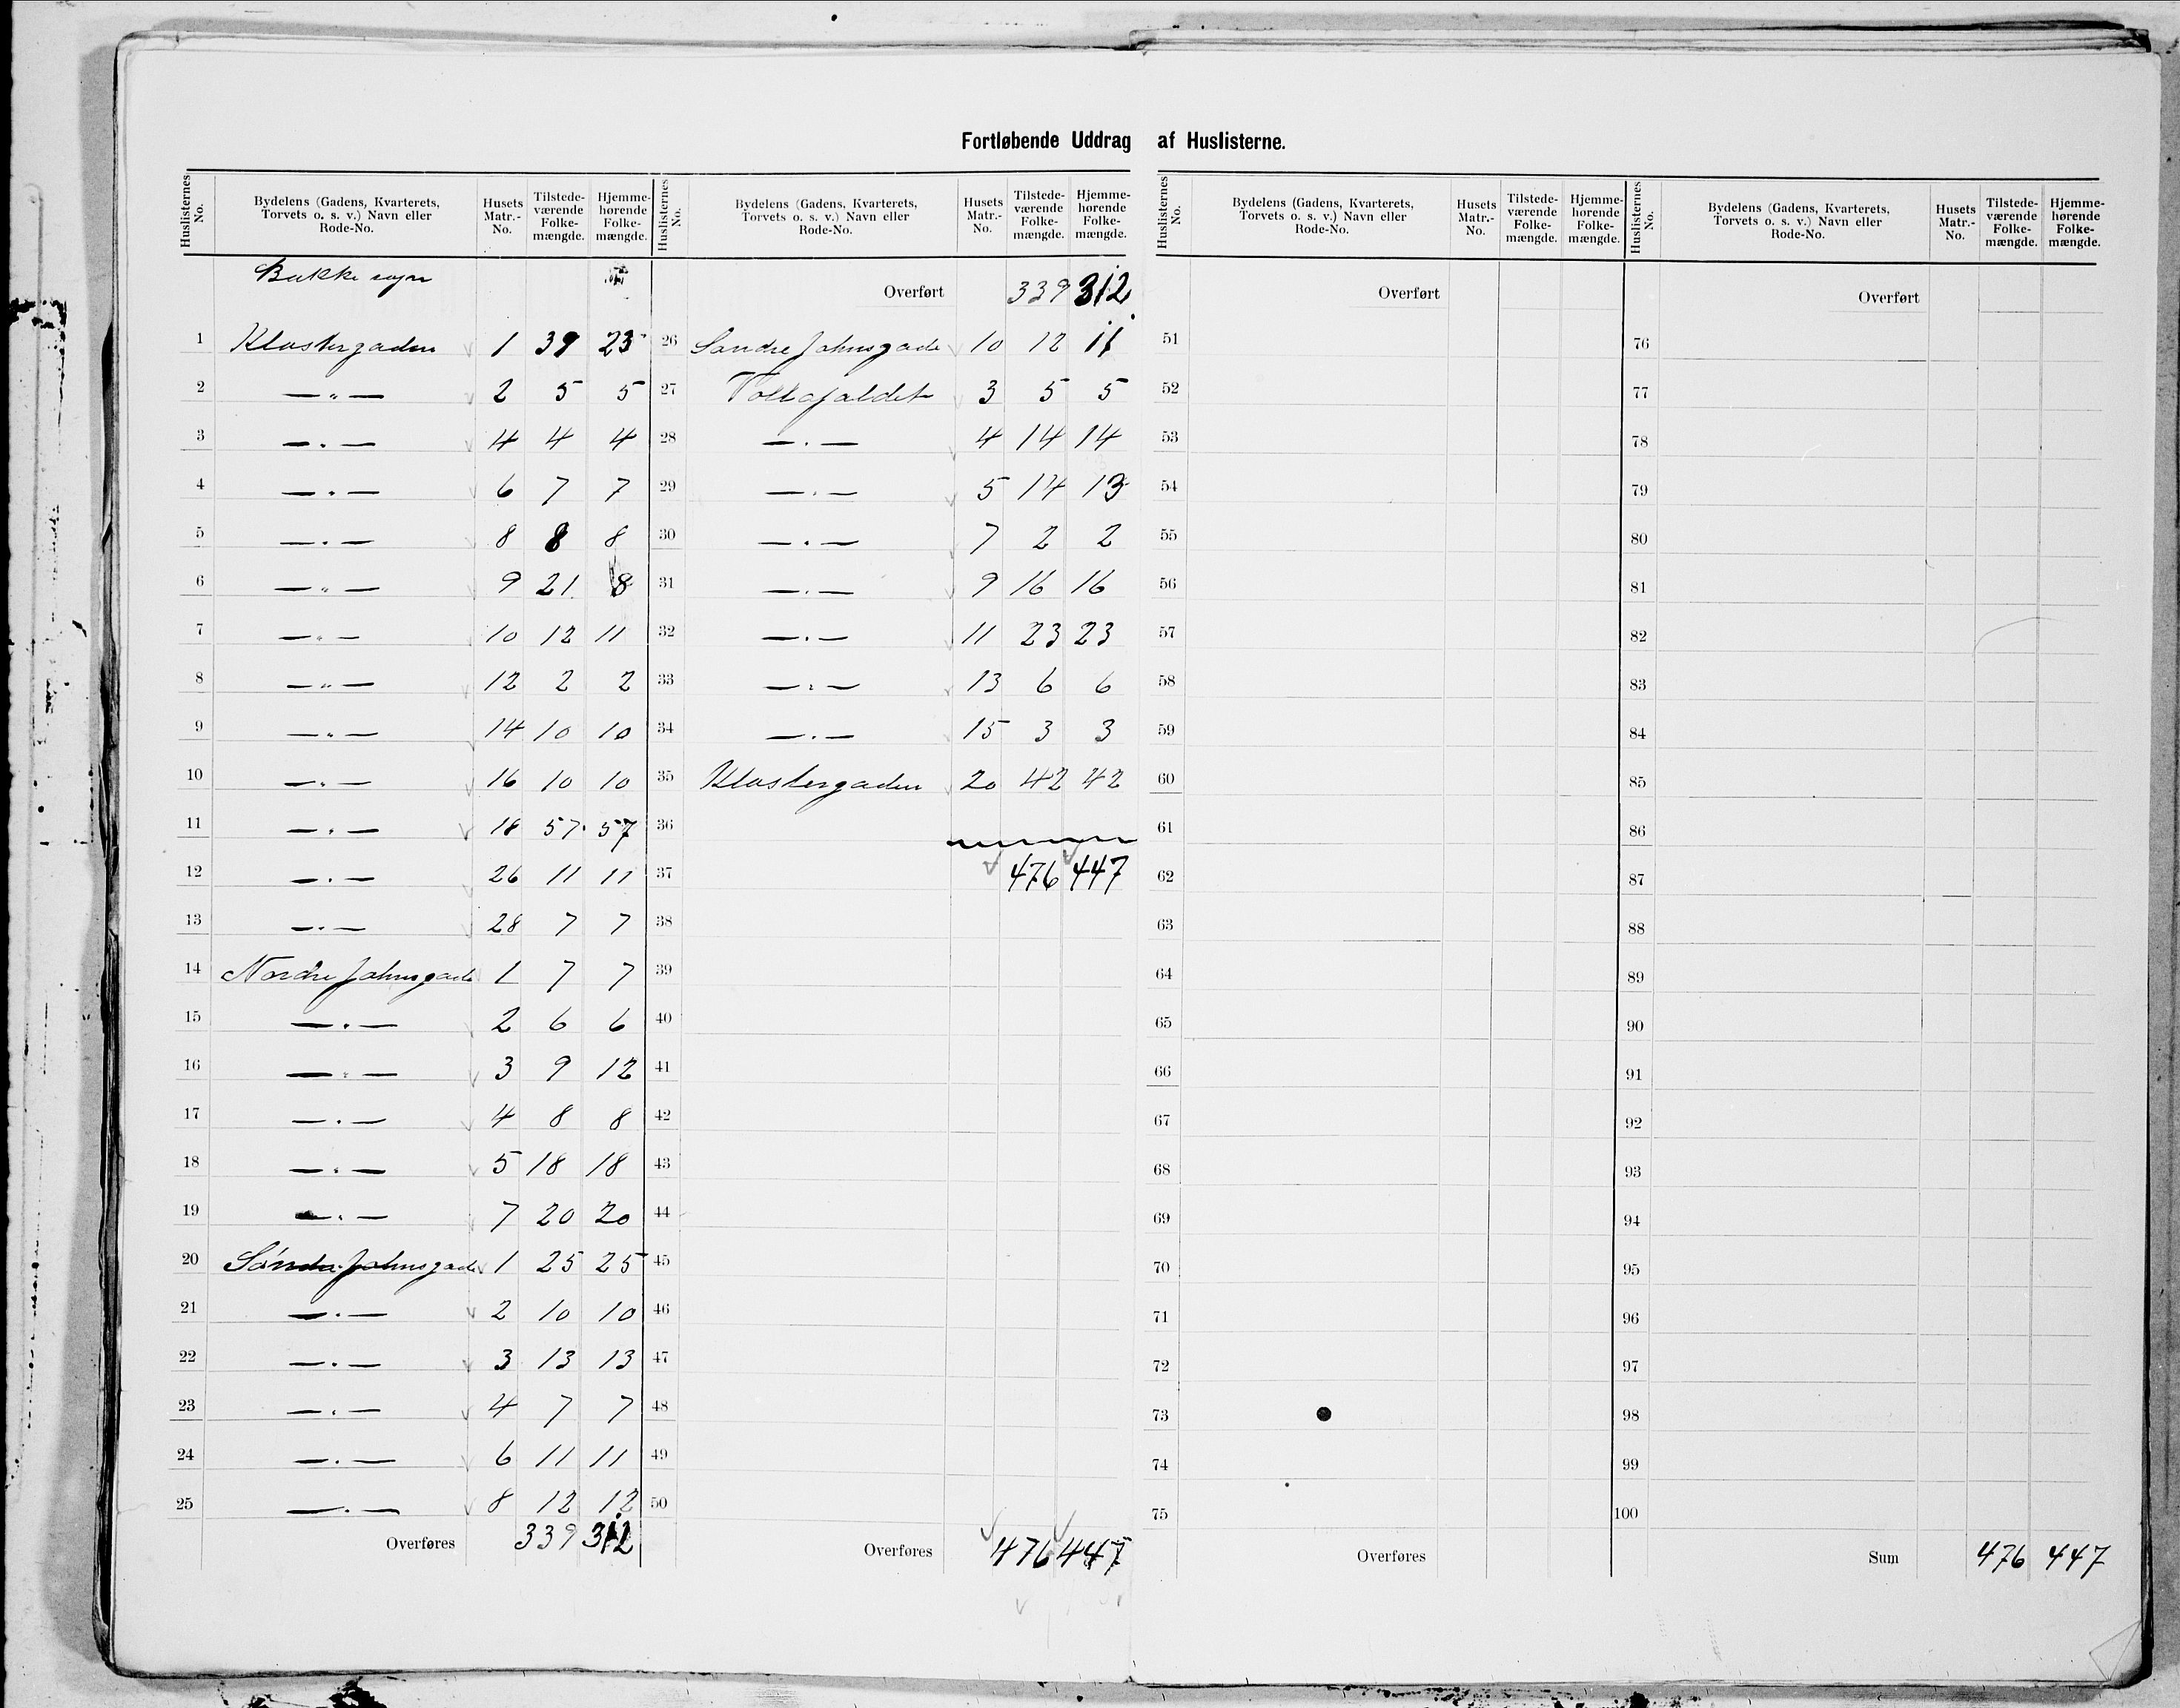 Fortløbende Uddrag af Huslisterne.
Huslisternes No. Bydelens (Gadens, Kvarterets, Torvets o. s. v.) Navn eller Rode-No. Husets Matr.-No. Tilstedeværende Folkemængde. Hjemmehørende Folkemængde.
Bakke sogn
1 Klostergaden 1 39 23
2 —"— 2 5 5
3 —"— 4 4 4
4 —"— 6 7 7
5 —"— 8 8 8
6 —"— 9 21 8
7 —"— 10 12 11
8 —"— 12 2 2
9 —"— 14 10 10
10 —"— 16 10 10
11 —"— 18 57 57
12 —"— 26 11 11
13 —"— 28 7 7
14 Nordre Johnsgade 1 7 7
15 —"— 2 6 6
16 —"— 3 9 12
17 —"— 4 8 8
18 —"— 5 18 18
19 —"— 7 20 20
20 Søndre Johnsgade 1 25 25
21 —"— 2 10 10
22 —"— 3 13 13
23 —"— 4 7 7
24 —"— 6 11 11
25 —"— 8 12 12
Overføres 339 312
Huslisternes No. Bydelens (Gadens, Kvarterets, Torvets o. s. v.) Navn eller Rode-No. Husets Matr.-No. Tilstedeværende Folkemængde. Hjemmehørende Folkemængde.
Overført 339 312
26 Søndre Johnsgade 10 12 11
27 3 5 5
28 —"— 4 14 14
29 —"— 5 14 13
30 —"— 7 2 2
31 —"— 9 16 16
32 —"— 11 23 23
33 —"— 13 6 6
34 —"— 15 3 3
35 Klostergaden 20 42 42
36
37 476 447
38
39
40
41
42
43
44
45
46
47
48
49
50
Overføres 476 447
Huslisternes No. Bydelens (Gadens, Kvarterets, Torvets o. s. v.) Navn eller Rode-No. Husets Matr.-No. Tilstedeværende Folkemængde. Hjemmehørende Folkemængde.
Overført
51
52
53
54
55
56
57
58
59
60
61
62
63
64
65
66
67
68
69
70
71
72
73
74
75
Overføres
Huslisternes No. Bydelens (Gadens, Kvarterets, Torvets o. s. v.) Navn eller Rode-No. Husets Matr.-No. Tilstedeværende Folkemængde. Hjemmehørende Folkemængde.
Overført
76
77
78
79
80
81
82
83
84
85
86
87
88
89
90
91
92
93
94
95
96
97
98
99
100
Sum 476 447